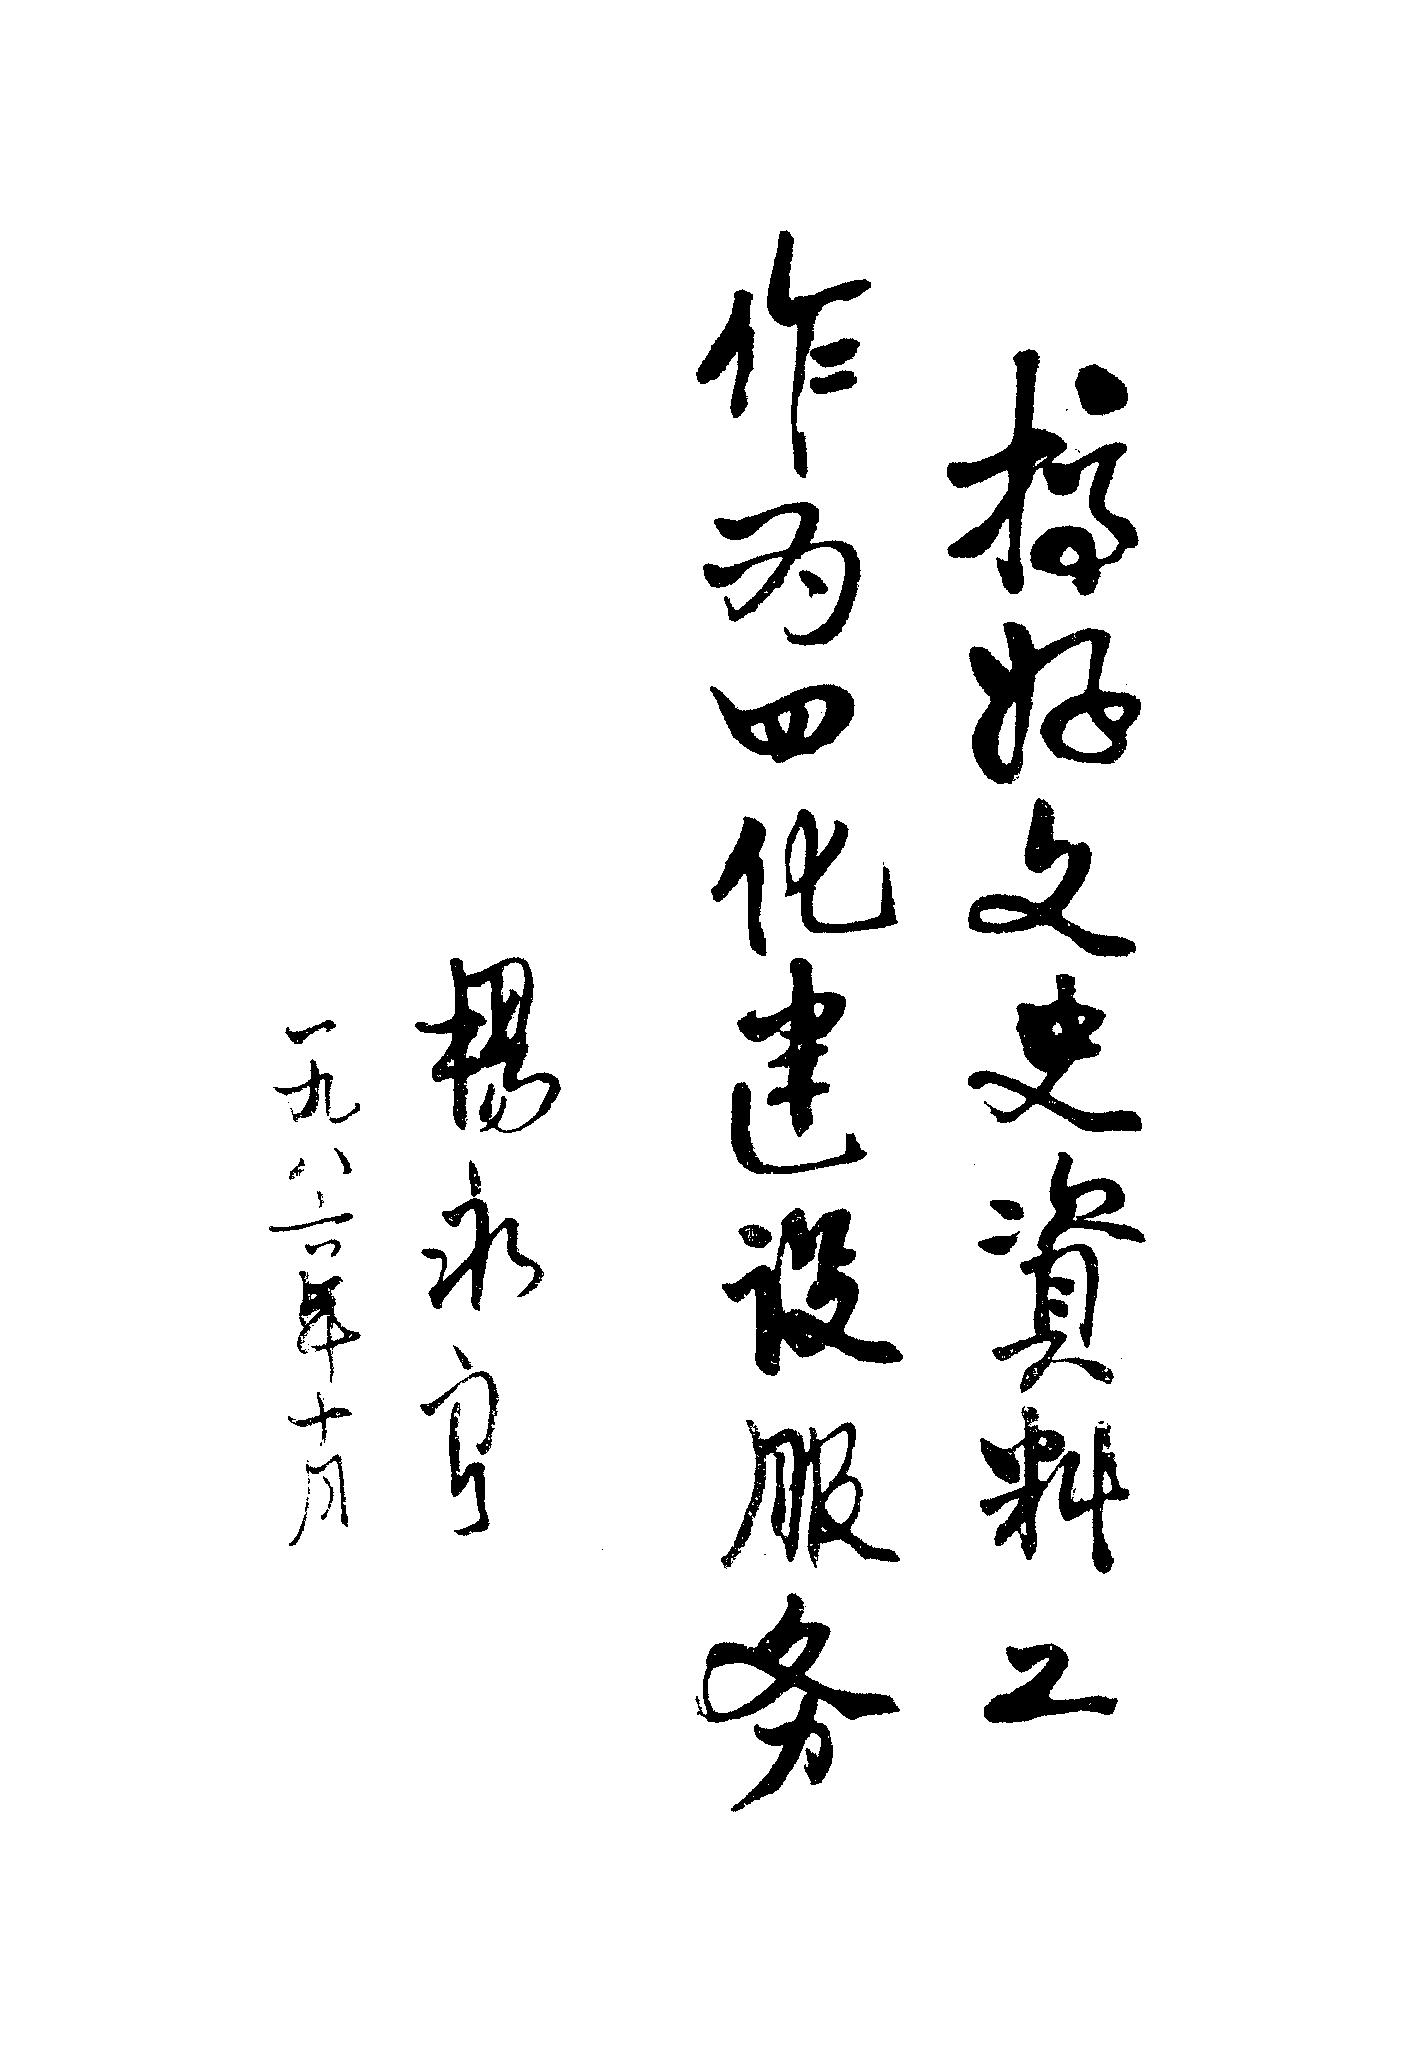 搞好文史資料工
作为四化建设服务
楊永
一九八六年十月